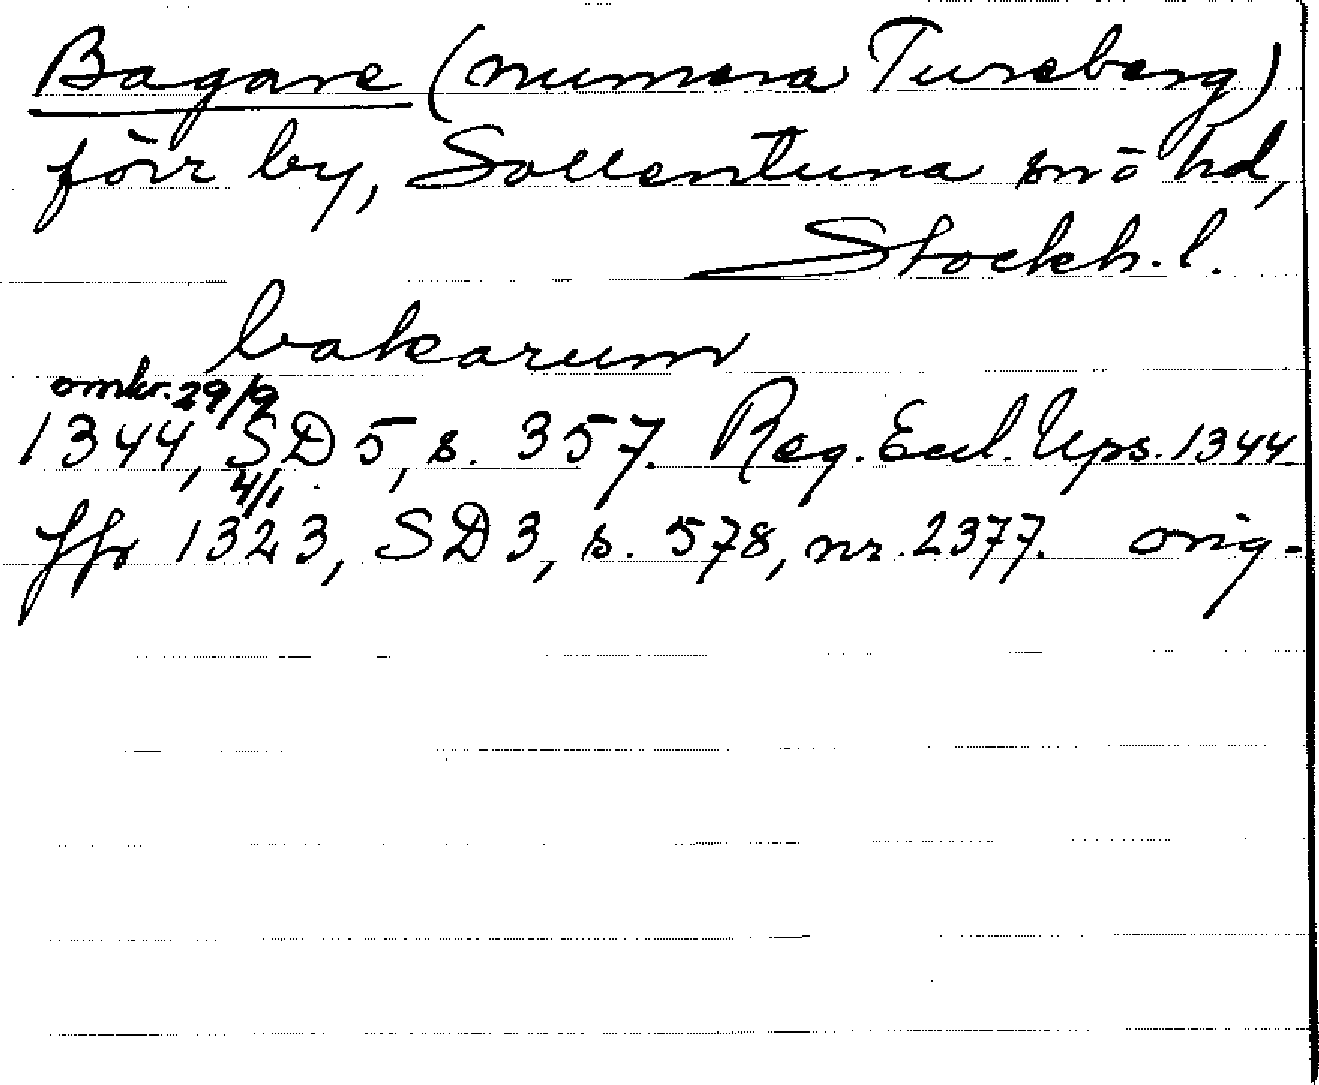 Bagare (numera Tureberg)
förr by, Sollentuna sn o hd,
Stockh. l.
bakarum
omkr. 29/9
1344, SD 5, s. 357. Reg. Eccl. Ups. 1344.
4/1
jfr 1323, SD 3, s. 578, nr. 2377. orig.